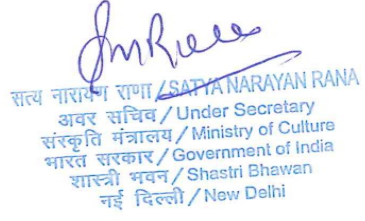 सत्य नारायण राणा/SATYA NARAYAN RANA
अवर सचिव/Under Secretary
संस्कृति मंत्रालय/Ministry of Culture
भारत सरकार/Government of India
शास्त्री भवन/Shastri Bhawan
नई दिल्ली/New Delhi